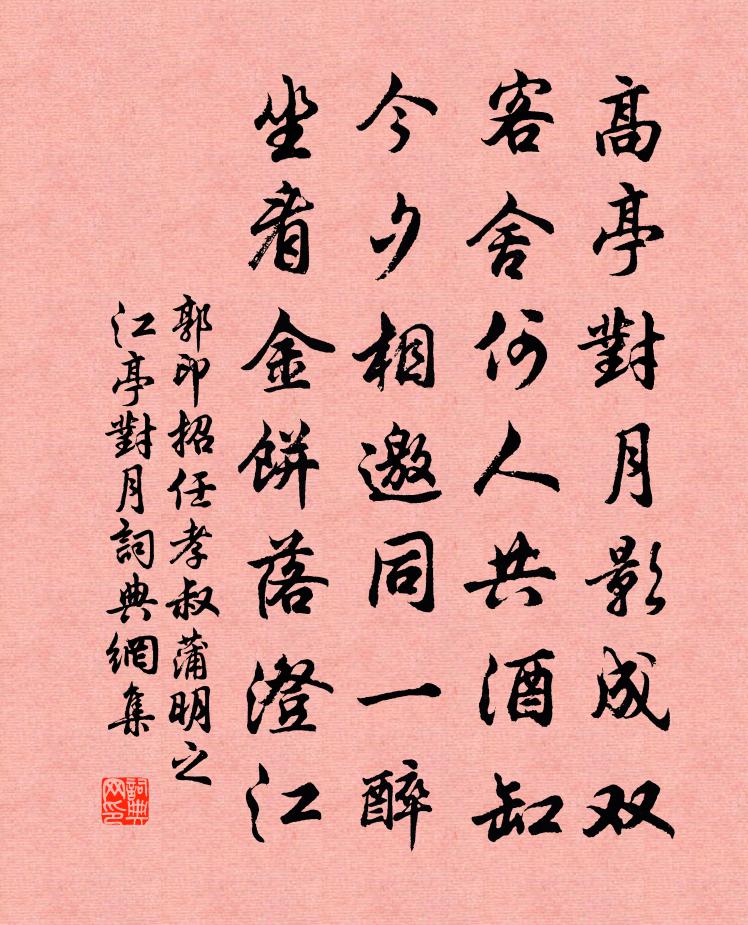 高亭對月影成双
客舍何人共酒缸
今夕相邀同一醉
坐看金餅落澄江
郭印招任孝叔蒲明之
江亭對月詞典網集
詞典
网印